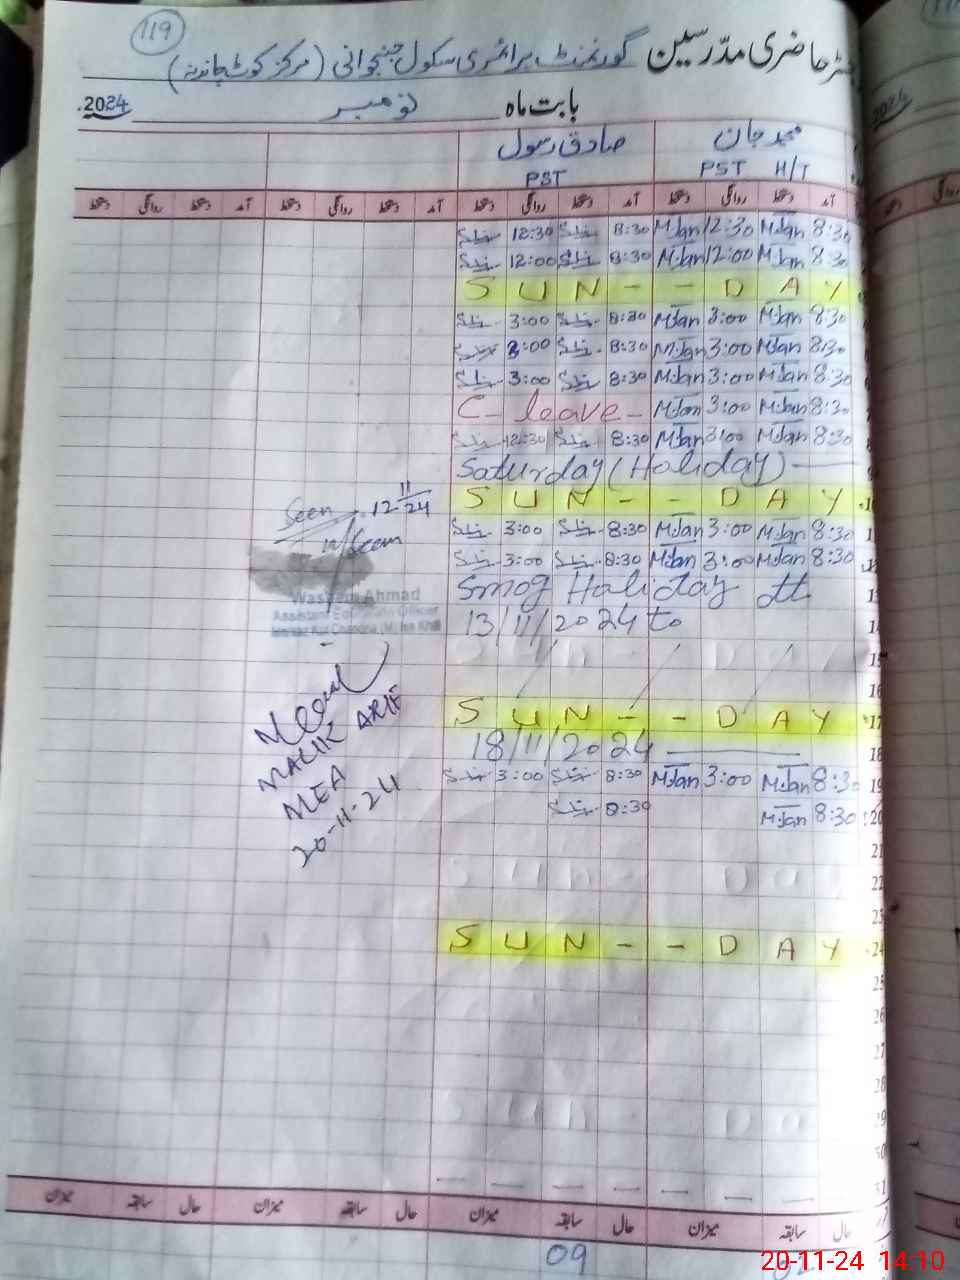 119
حاضری مدرسین گورنمنٹ پرائمری سکول جنجوانی (مرکز کوٹ چاندنہ)
بابت ماہ نومبر 2024
محمد جان صادق رسول
PST H/T PST
آمد دستخط روانگی دستخط آمد دستخط روانگی دستخط آمد دستخط روانگی دستخط آمد دستخط روانگی دستخط
12:30 8:30 M.Jan 12:30 M.Jan 8:30
12:00 8:30 M.Jan 12:00 M.Jan 8:30
S U N - - D A Y
3:00 8:30 M.Jan 3:00 M.Jan 8:30
3:00 8:30 M.Jan 3:00 M.Jan 8:30
3:00 8:30 M.Jan 3:00 M.Jan 8:30
C- leave - M.Jan 3:00 M.Jan 8:30
12:30 8:30 M.Jan 3:00 M.Jan 8:30
Saturday (Haliday)
S U N - - D A Y
3:00 8:30 M.Jan 3:00 M.Jan 8:30
3:00 8:30 M.Jan 3:00 M.Jan 8:30
Smog Haliday
13/11/2024 to 14
15
16
S U N - - D A Y 17
18/11/2024 18
3:00 8:30 M.Jan 3:00 M.Jan 8:30 19
8:30 M.Jan 8:30 20
21
22
23
S U N - - D A Y 24
25
26
27
28
29
30
31
Seen 12 11/24
Waseem Ahmad
Assistant Education Officer
MALIK ARIF
MEA
20-11-24
حال سابقہ میزان حال سابقہ میزان حال سابقہ میزان حال سابقہ میزان
09
20-11-24 14:10
2024